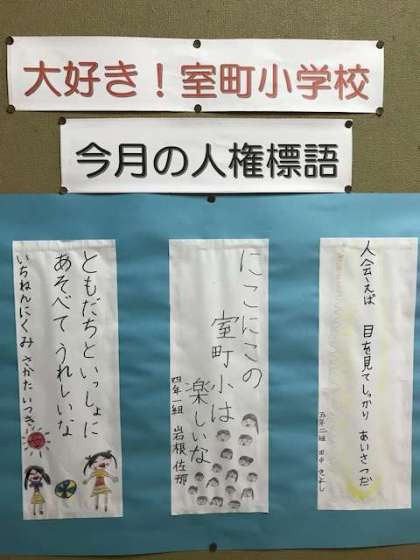 大好き！室町小学校
今月の人権標語
人会えば 目を見てしっかり あいさつだ
五年二組 田中 きよし
にこにこの
室町小は
楽しいな
四年一組 岩根佐那
ともだちといっしょに
あそべて うれしいな
いちねんにくみ さかた いつき